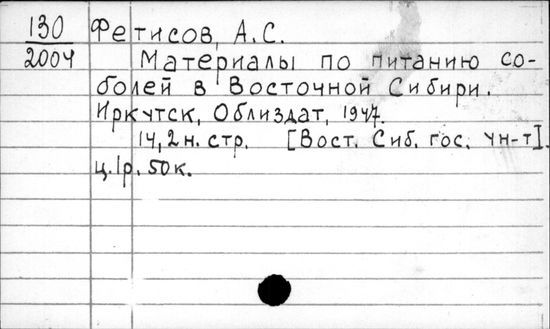 130 Фетисов, А.С.
2004 Материалы по питанию со-
болей в Восточной Сибири.
Иркутск, Облиздат, 1947.
14, 2 н. стр. [Вост. Сиб. гос. ун-т].
ц. 1р. 50к.